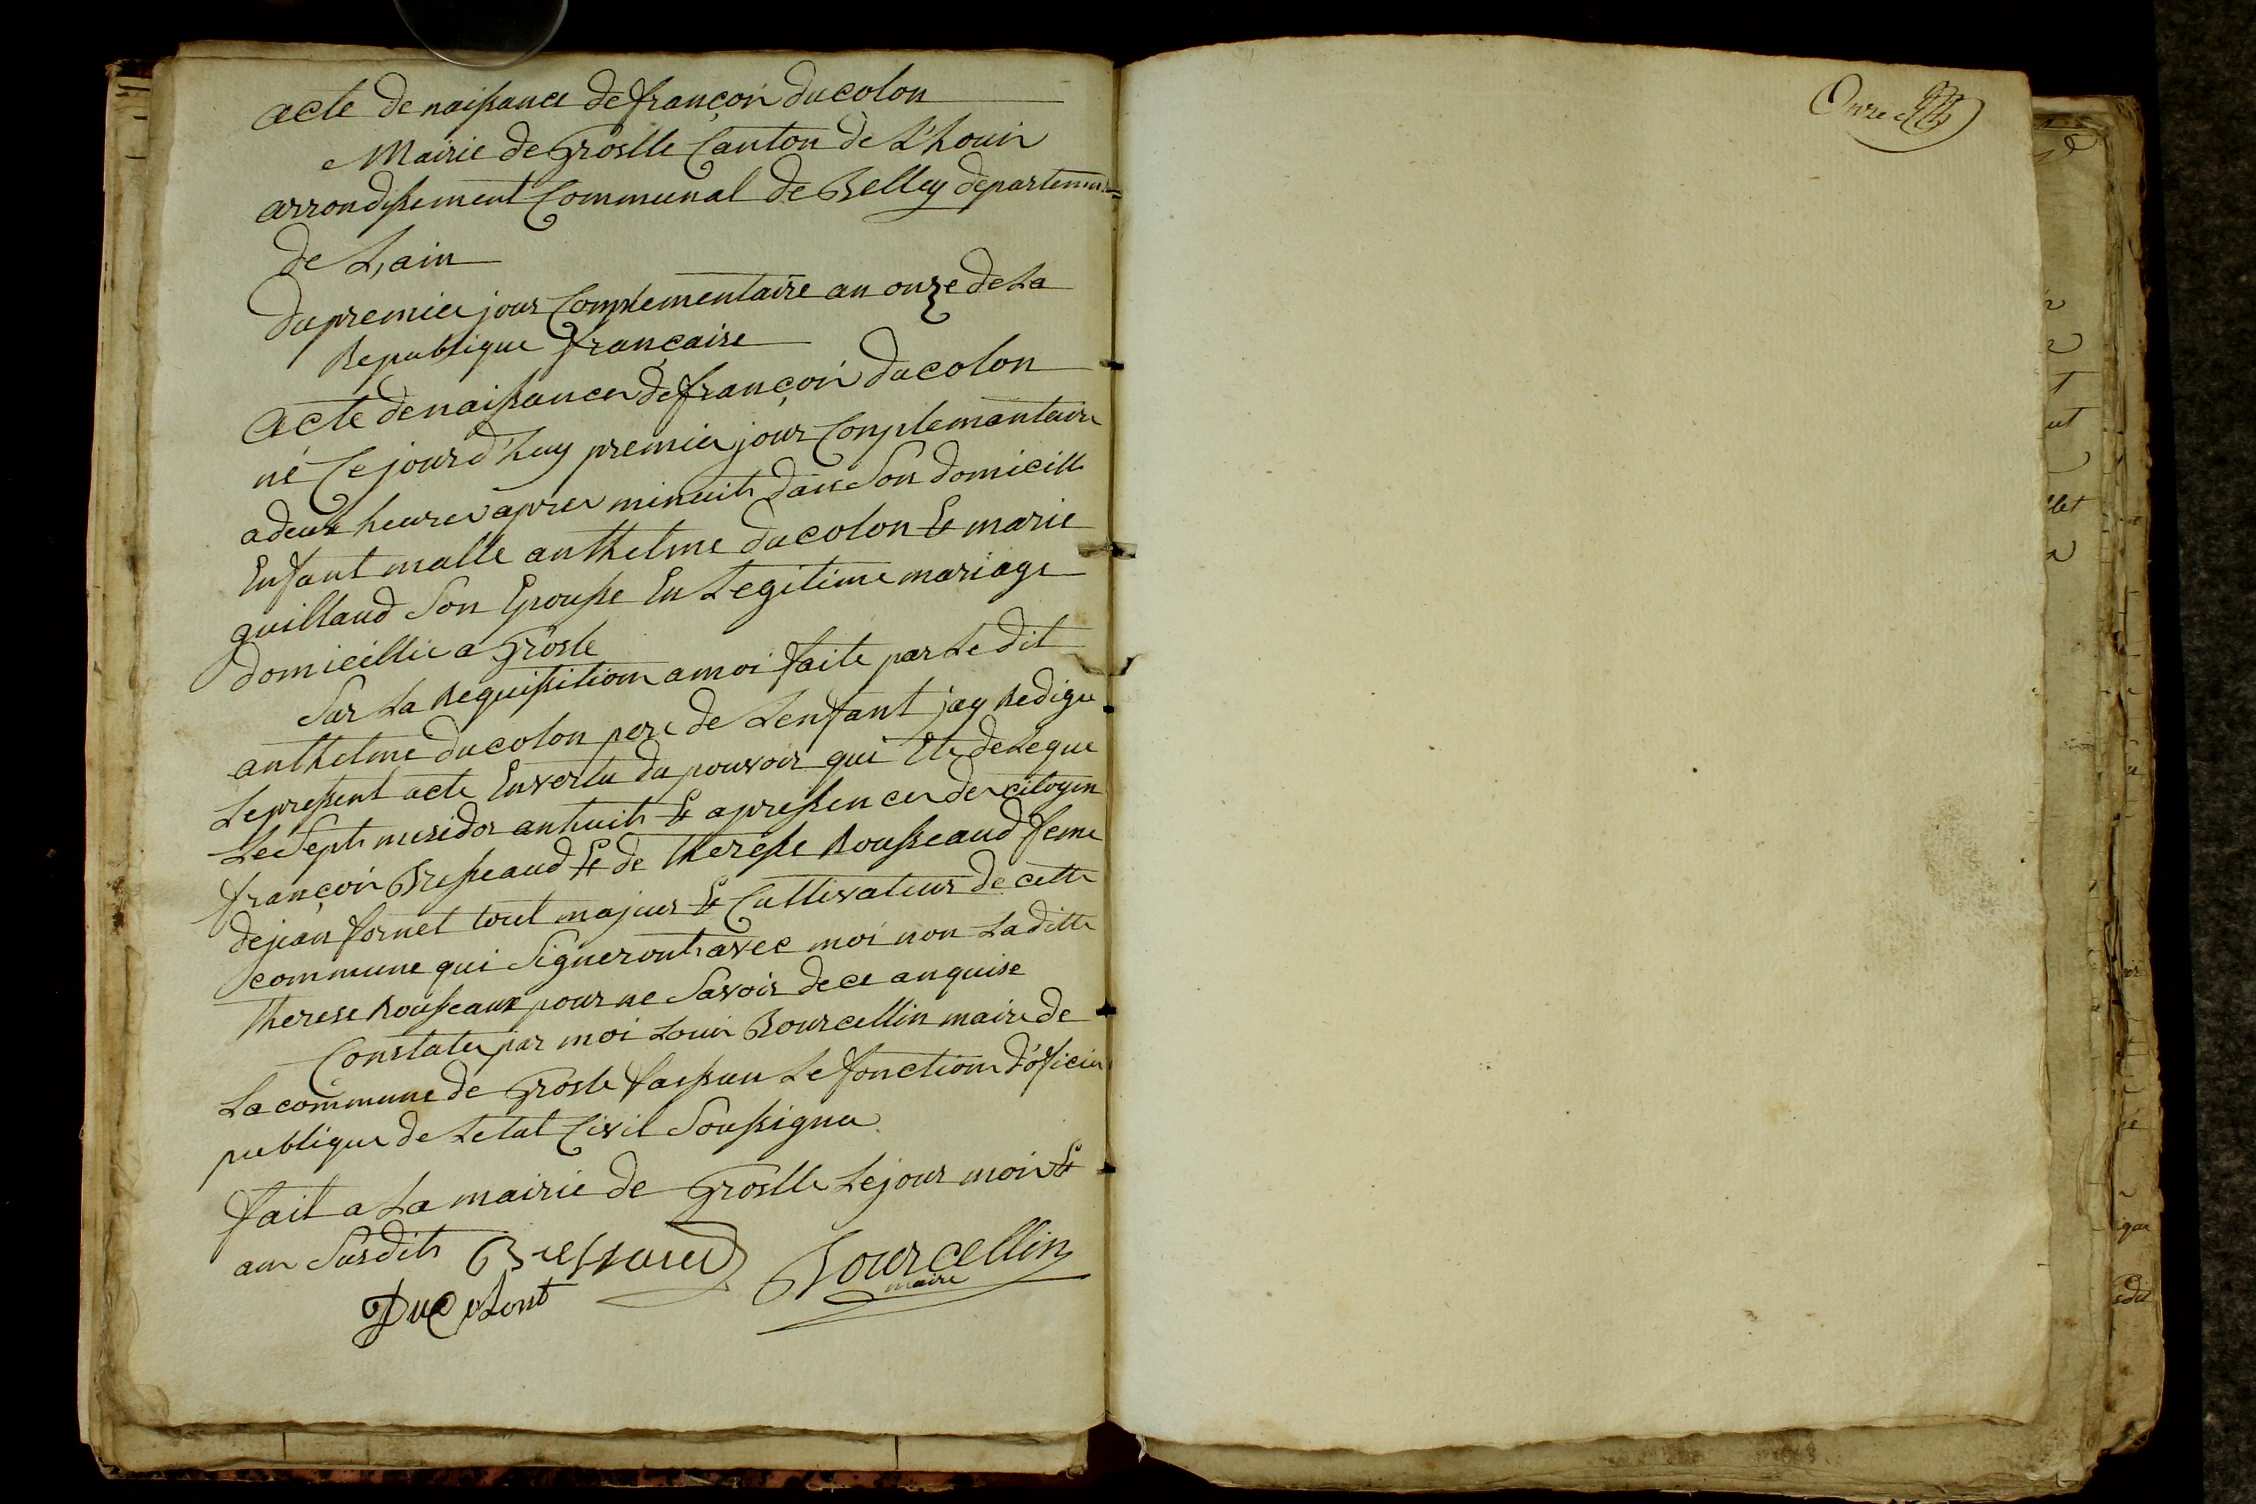 acte de naissance de françois ducolon
Mairie de Groslle Canton de L'houis
arrondissement Communal de Belley departement
de L'ain
du premier jour Complementaire an onze de La
Republique française
Acte de naissances de françois ducolon
né Ce jourd'huy premier jour Conplemantaire
a deux heures apres minuit dans Son domicille
Enfant malle anthelme ducolon Et marie
guillaud Son Epousse En Legitime mariage
domicillié a Grosle
Sur La Requisition a moi faite par Le dit
anthelme ducolon pere de Lenfant j'ay Redigé
Le pressent acte En vertu du pouvoir qui Et delegué
Le Sept mesidor an huit Et a pressences des citoyen
françois Bresseaud Et de therese Rousseaud feme
de jean fornet tout majeur Et Cultivateur de cette
commune qui Signeront avec moi non La ditte
therese Rousseaux pour ne Savoir de ce anquise
Constaté par moi Louis Bourcellin maire de
La commune de Grosle faissan Le fonction d'oficier
publique de Letat Civil Soussigné
fait a La mairie de Groslle Le jour mois Et
an Susdit Bressaud Bourcellin
maire
Ducolont
Onze